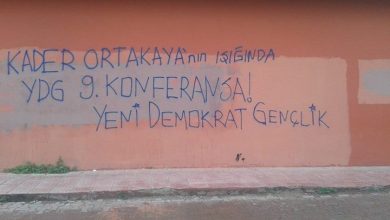 KADER ORTAKAYA'nın IŞIĞINDA
YDG 9. KONFERANSA!
YENİ DEMOKRAT GENÇLİK